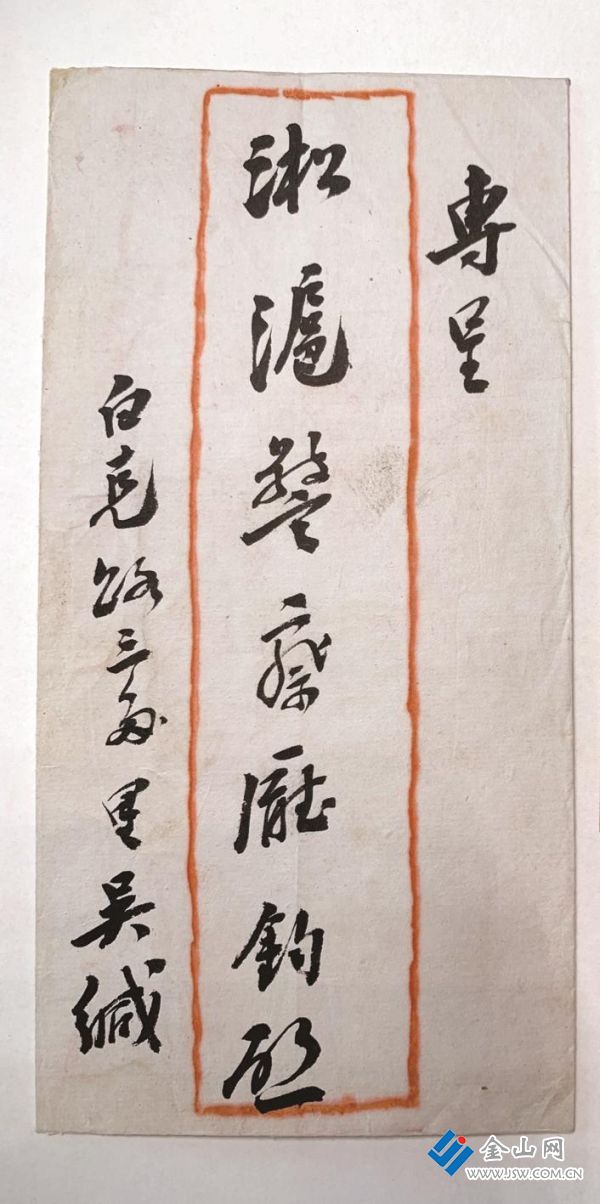 專呈
淞滬警察廳鈞啟
白克路三多里吴緘
金山网
WWW.JSW.COM.CN